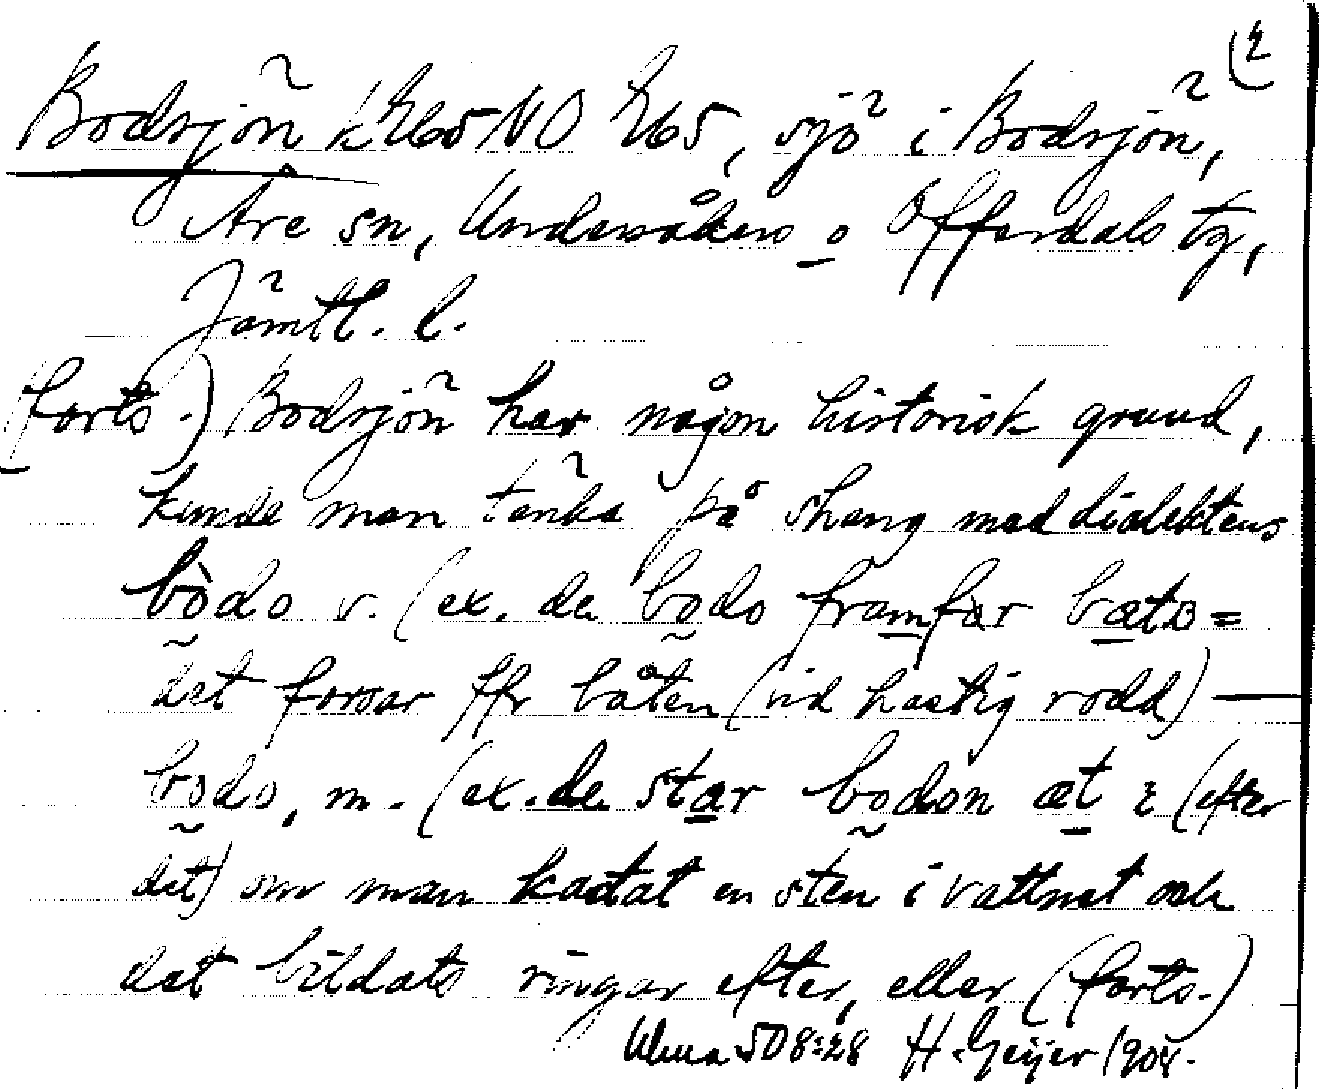 (2
Bodsjön k 265 NO 265, sjö i Bodsjön,
Åre sn, Undersåkers o Offerdals tg,
Jämtl. l.
(forts.) Bodsjön har någon historisk grund,
kunde man tänka på shang med dialektens
bòdo v. (ex. de bodo framfär bæto =
det forsar ffr båten (vid hastig rodd) —
bodo, m. (ex. de star bodon æt ɛ (efter
det) om man kastat en sten i vattnet och
det bildats ringar efter, eller (forts.)
Ulma 508:28 H. Geijer 1908.